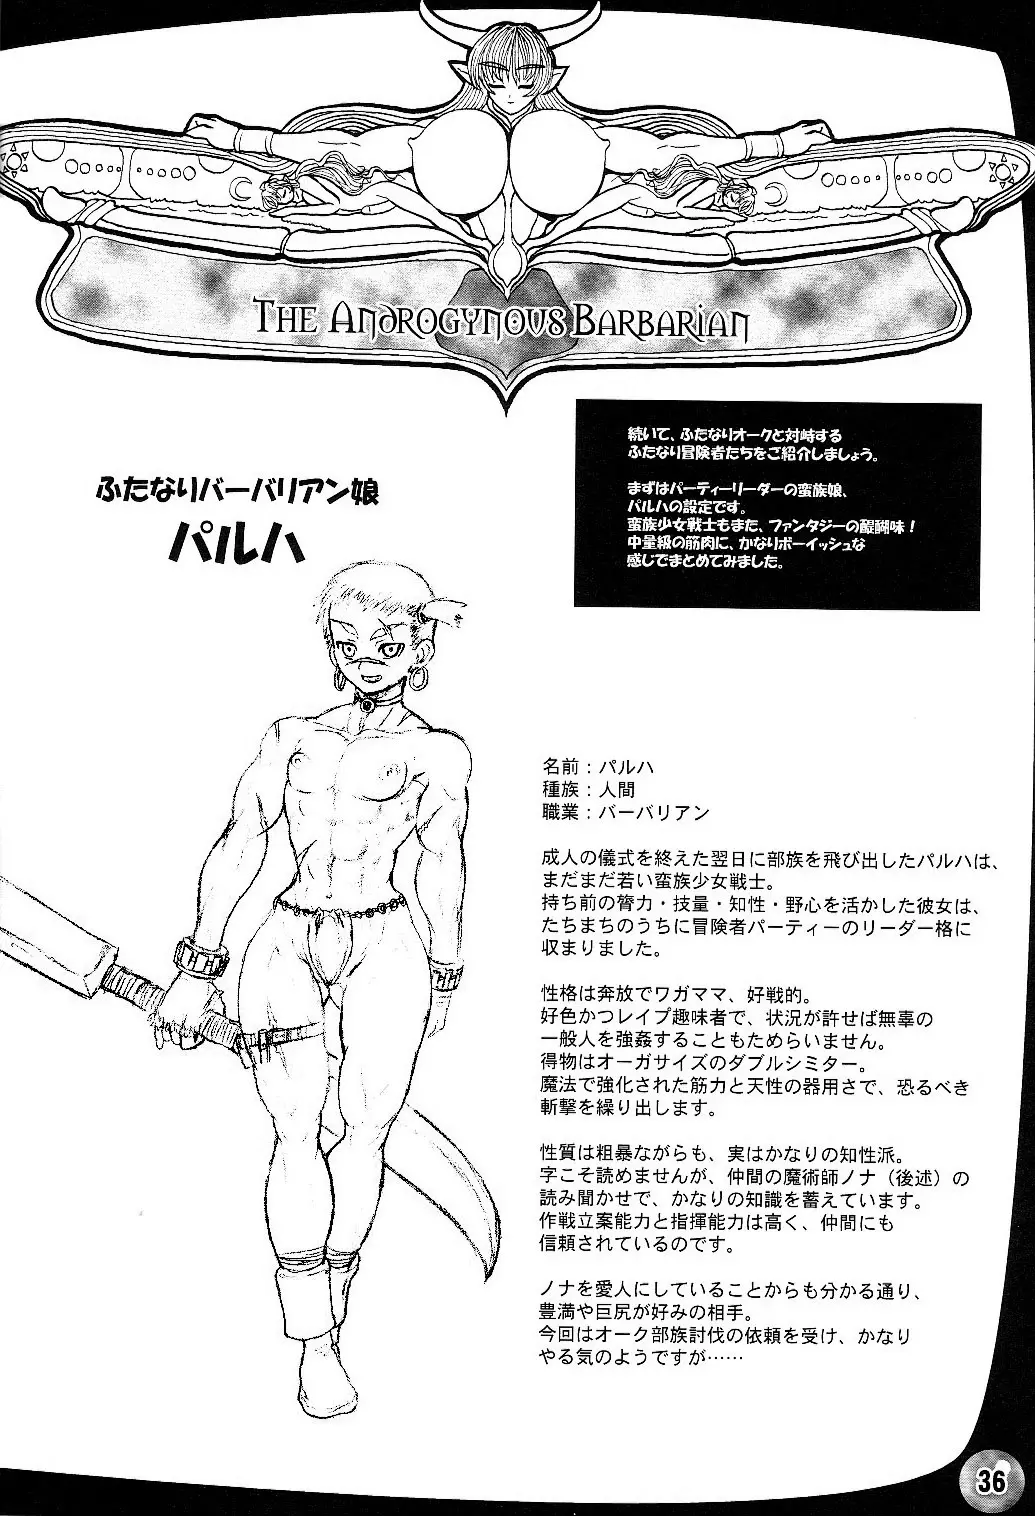 THE ANDROGYNOUS BARBARIAN
続いて、ふたなりオークと対峙する
ふたなり冒険者たちをご紹介しましょう。
まずはパーティーリーダーの蛮族娘、
パルハの設定です。
蛮族少女戦士もまた、ファンタジーの醍醐味！
中量級の筋肉に、かなりボーイッシュな
感じでまとめてみました。
ふたなりバーバリアン娘
パルハ
名前：パルハ
種族：人間
職業：バーバリアン
成人の儀式を終えた翌日に部族を飛び出したパルハは、
まだまだ若い蛮族少女戦士。
持ち前の膂力・技量・知性・野心を活かした彼女は、
たちまちのうちに冒険者パーティーのリーダー格に
収まりました。
性格は奔放でワガママ、好戦的。
好色かつレイプ趣味者で、状況が許せば無辜の
一般人を強姦することもためらいません。
得物はオーガサイズのダブルシミター。
魔法で強化された筋力と天性の器用さで、恐るべき
斬撃を繰り出します。
性質は粗暴ながらも、実はかなりの知性派。
字こそ読めませんが、仲間の魔術師ノナ（後述）の
読み聞かせで、かなりの知識を蓄えています。
作戦立案能力と指揮能力は高く、仲間にも
信頼されているのです。
ノナを愛人にしていることからも分かる通り、
豊満や巨尻が好みの相手。
今回はオーク部族討伐の依頼を受け、かなり
やる気のようですが……
36